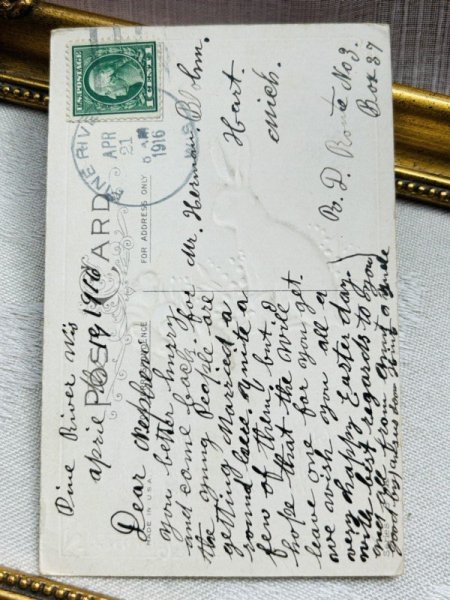 U.S. POSTAGE
1 CENT 1
PINE RIVER
APR
21
5 AM
1916
WIS
POST CARD
CORRESPONDENCE
FOR ADDRESS ONLY
MADE IN U.S.A.
Pine River Wis
april 19 1916
Dear Nephew
you better hurry
and come back for
the yung People are
getting Married a
round here. Quite a
few of them but I
hope that the will
leave one for you yet.
we wish you all a
very happy Easter day.
with best regards to you
and all from aunt & uncle
good
from aunt & uncle
Mr. Herman Bohm.
Hart
Mich.
R. D. Route No 3.
Box 37